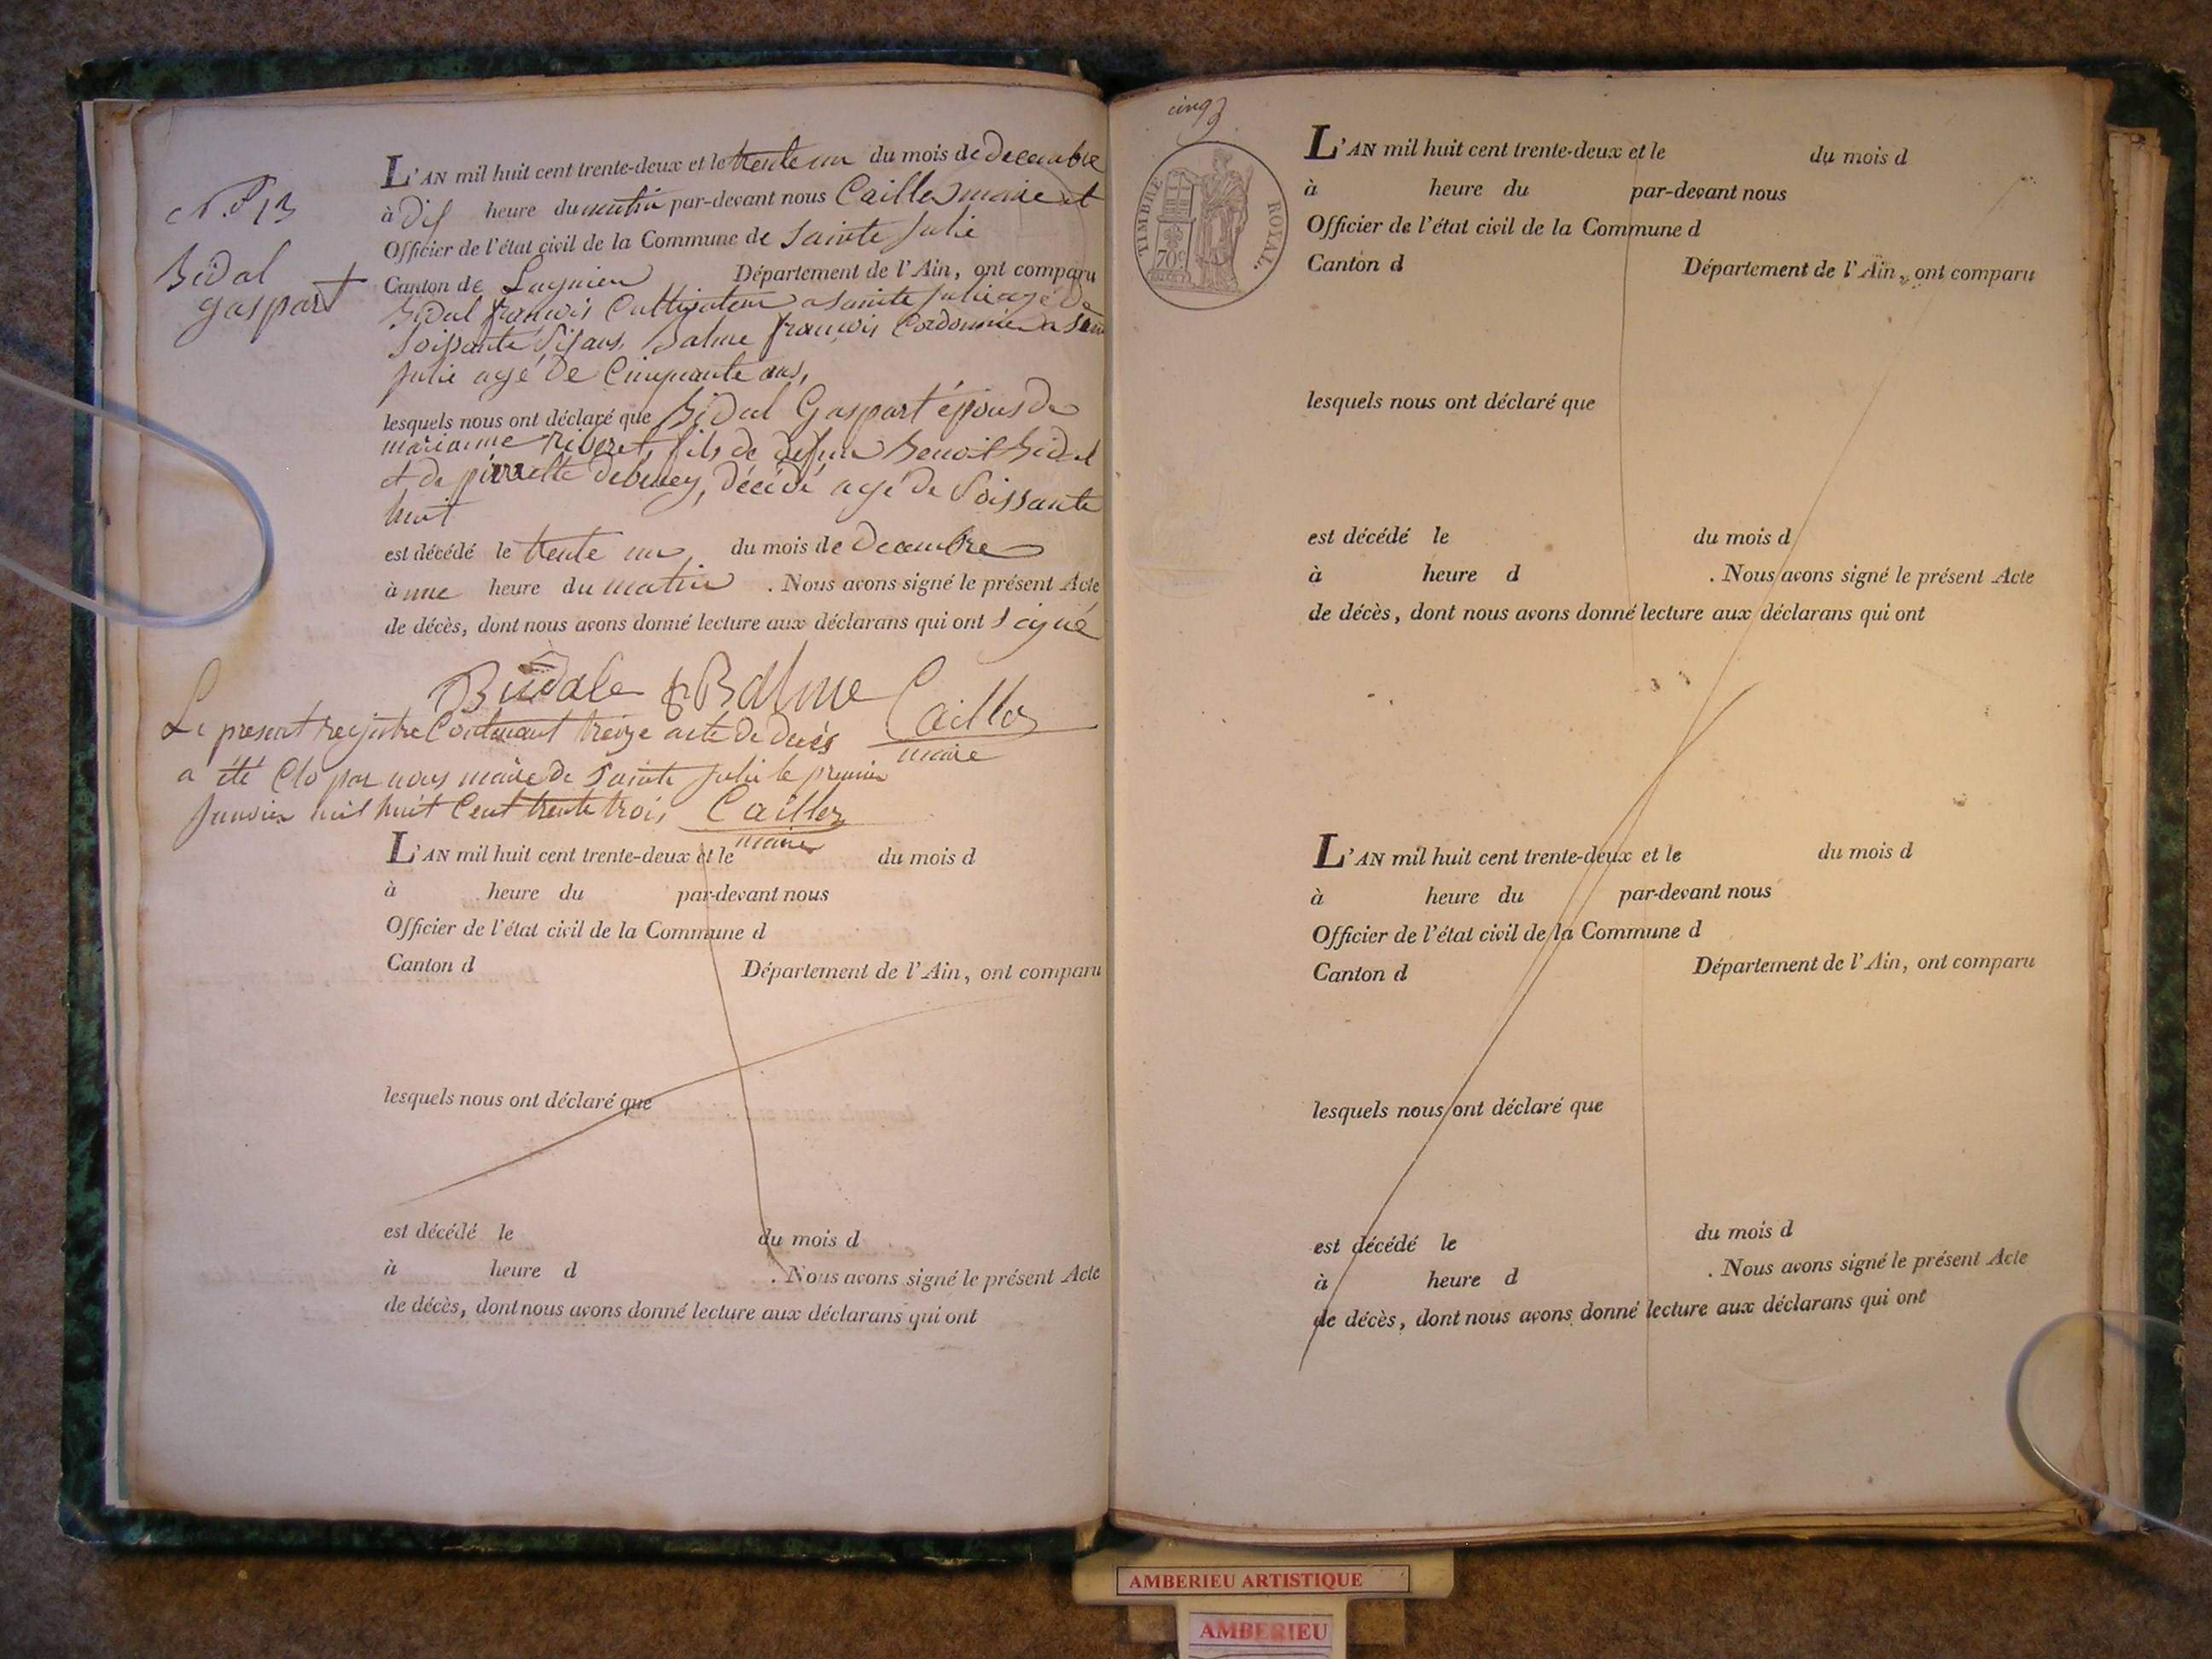 N.o 13
Bidal
gaspart
L'AN mil huit cent trente-deux et le trente un du mois de decembre
à dix heure du matin par-devant nous Cailler maire et
Officier de l'état civil de la Commune de Sainte Julie
Canton de Lagnieu Département de l'Ain, ont comparu
Bidal françois Cultivateur a Sainte Julie agé de
Soissante Six ans, Balme françois Cordonnier a Sain
Julie agé de Cinquante ans,
lesquels nous ont déclaré que Bidal Gaspart épous de
marianne riboret, fils de defun Benoit Bidal
et de pierrette debeney, décédé agé de Soissante
huit
est décédé le trente un, du mois de decembre
à une heure du matin . Nous avons signé le présent Acte
de décès, dont nous avons donné lecture aux déclarans qui ont signé
Bidale Balme Cailler
maire
Le present registre Contenant treize acte de decès
a été Clo par nous maire de Sainte Julie le premier
Janvier mil huit Cent trente trois, Cailler
maire
L'AN mil huit cent trente-deux et le du mois d
à heure du par-devant nous
Officier de l'état civil de la Commune d
Canton d Département de l'Ain, ont comparu
lesquels nous ont déclaré que
est décédé le du mois d
à heure d . Nous avons signé le présent Acte
de décès, dont nous avons donné lecture aux déclarans qui ont
cinq
TIMBRE ROYAL.
70c
L'AN mil huit cent trente-deux et le du mois d
à heure du par-devant nous
Officier de l'état civil de la Commune d
Canton d Département de l'Ain, ont comparu
lesquels nous ont déclaré que
est décédé le du mois d
à heure d . Nous avons signé le présent Acte
de décès, dont nous avons donné lecture aux déclarans qui ont
L'AN mil huit cent trente-deux et le du mois d
à heure du par-devant nous
Officier de l'état civil de la Commune d
Canton d Département de l'Ain, ont comparu
lesquels nous ont déclaré que
est décédé le du mois d
à heure d . Nous avons signé le présent Acte
de décès, dont nous avons donné lecture aux déclarans qui ont
AMBERIEU ARTISTIQUE
AMBERIEU